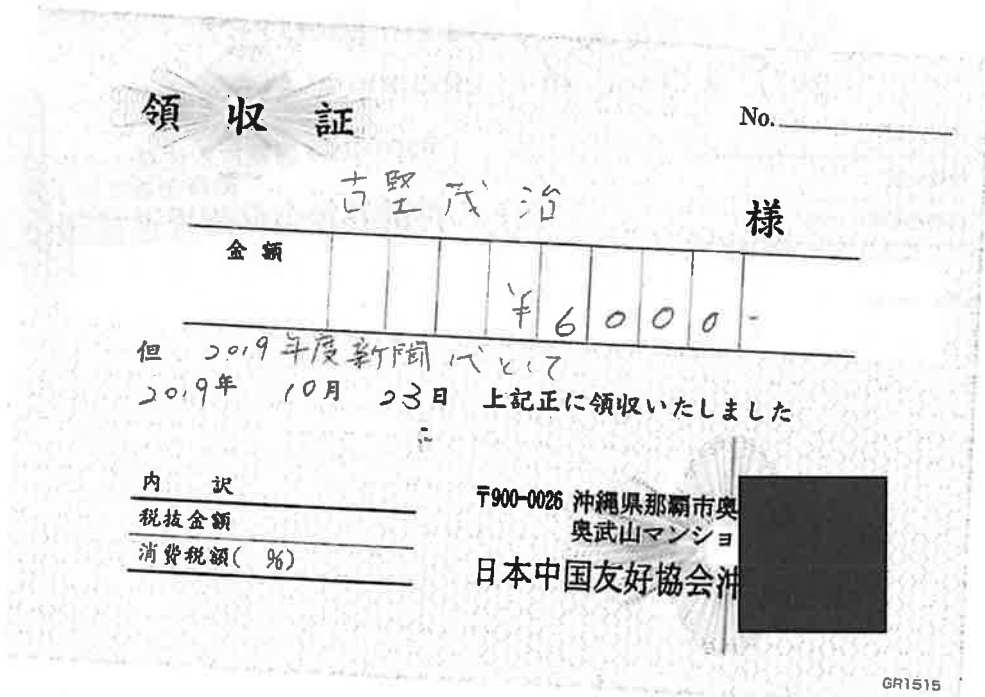 領収証
No.
古堅茂治 様
金額
¥6000-
但 2019年度新聞代として
2019年 10月 23日 上記正に領収いたしました
内訳
税抜金額
消費税額( %)
〒900-0026 沖縄県那覇市奥
奥武山マンショ
日本中国友好協会沖
GR1515